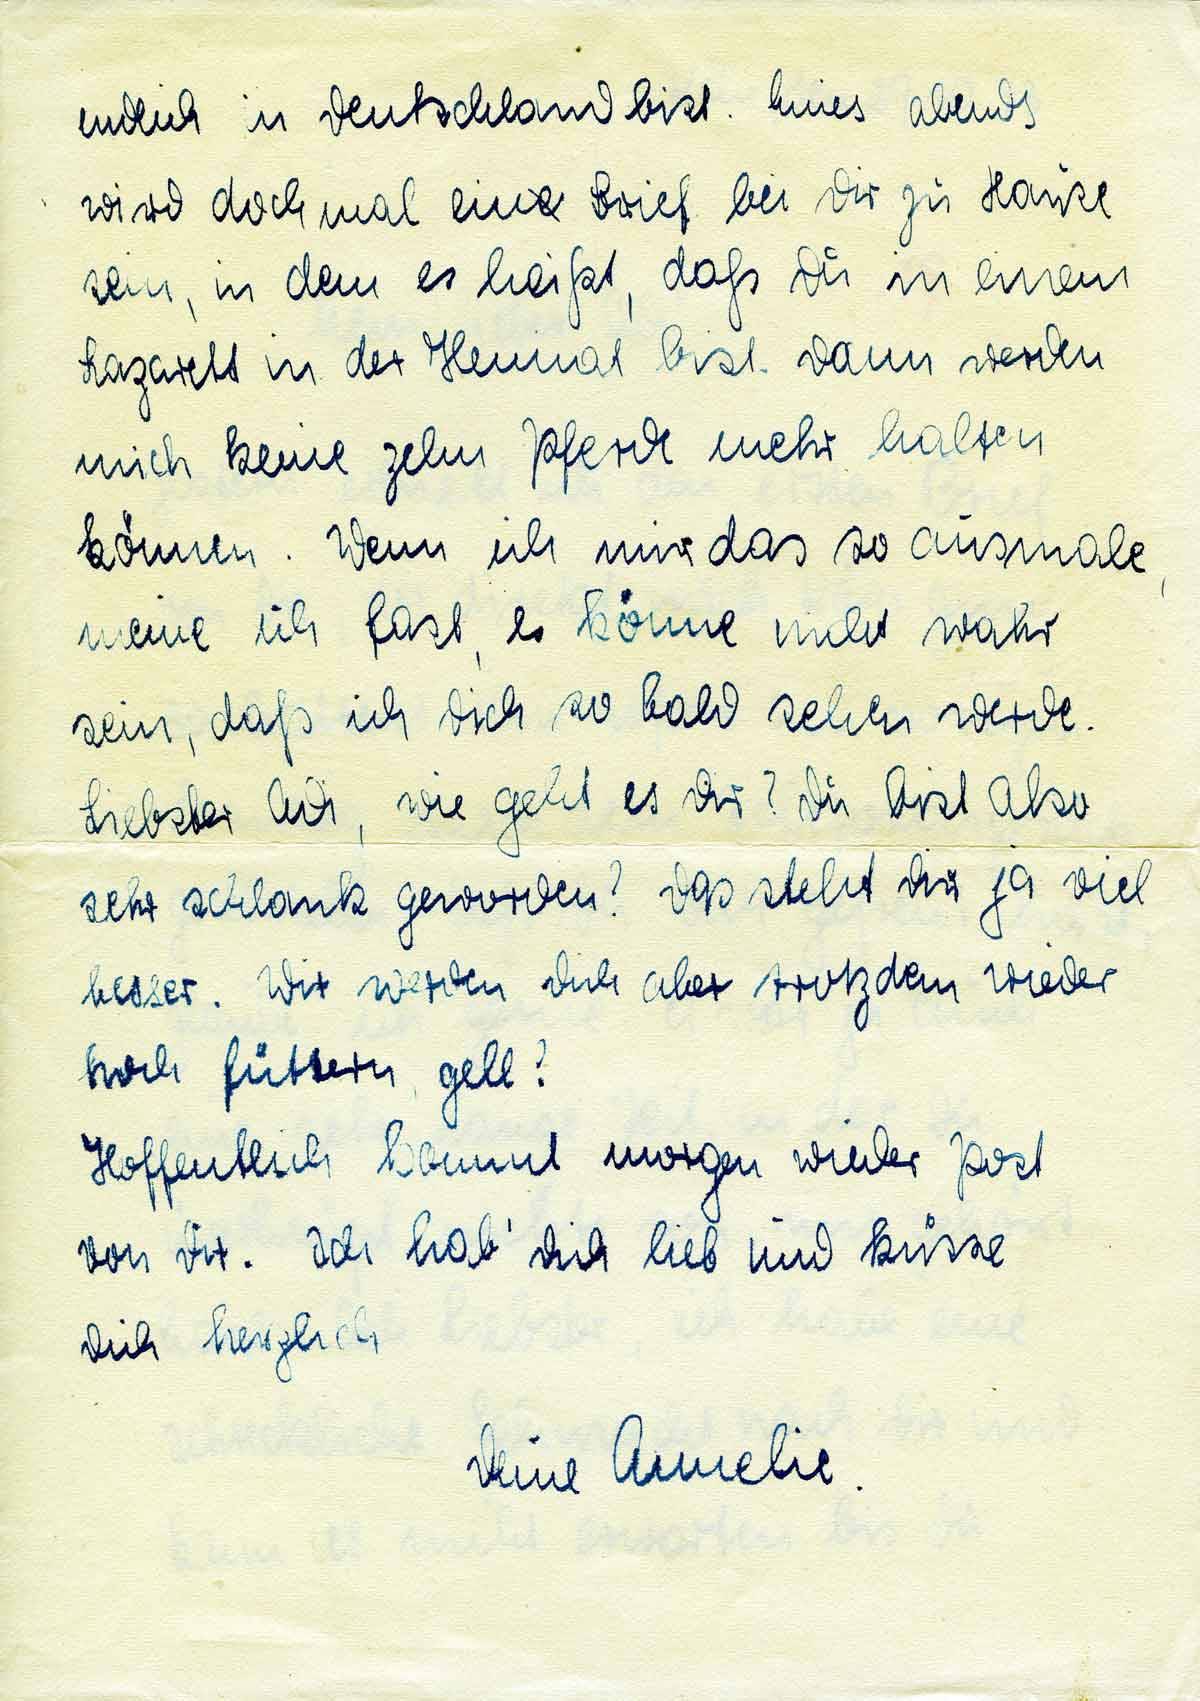 endlich in Deutschland bist. Eines abends
wird doch mal eine Brief bei Dir zu Hause
sein, in dem es heißt, daß Du in einem
Lazarett in der Heimat bist. Dann werden
mich keine zehn Pferde mehr halten
können. Wenn ich mir das so ausmale,
meine ich fast, es könne nicht wahr
sein, daß ich Dich so bald sehen werde.
Liebster Du, wie geht es Dir? Du bist also
sehr schlank geworden? Das steht Dir ja viel
besser. Wir werden Dich aber trotzdem wieder
hoch füttern, gell?
Hoffentlich kommt morgen wieder Post
von Dir. Ich hab' Dich lieb und küsse
Dich herzlich
Deine Annelie.